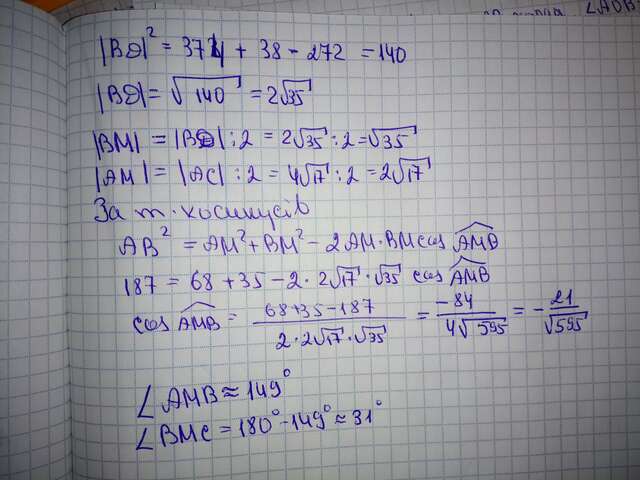 |BD|² = 374 + 38 - 272 = 140
|BD| = √140 = 2√35
|BM| = |BD| : 2 = 2√35 : 2 = √35
|AM| = |AC| : 2 = 4√17 : 2 = 2√17
За т. косинусів
AB² = AM² + BM² - 2AM · BM cos AMB
187 = 68 + 35 - 2 · 2√17 · √35 cos AMB
cos AMB = (68 + 35 - 187) / (2 · 2√17 · √35) = -84 / (4√595) = - 21 / √595
∠AMB ≈ 149°
∠BMC = 180° - 149° ≈ 31°